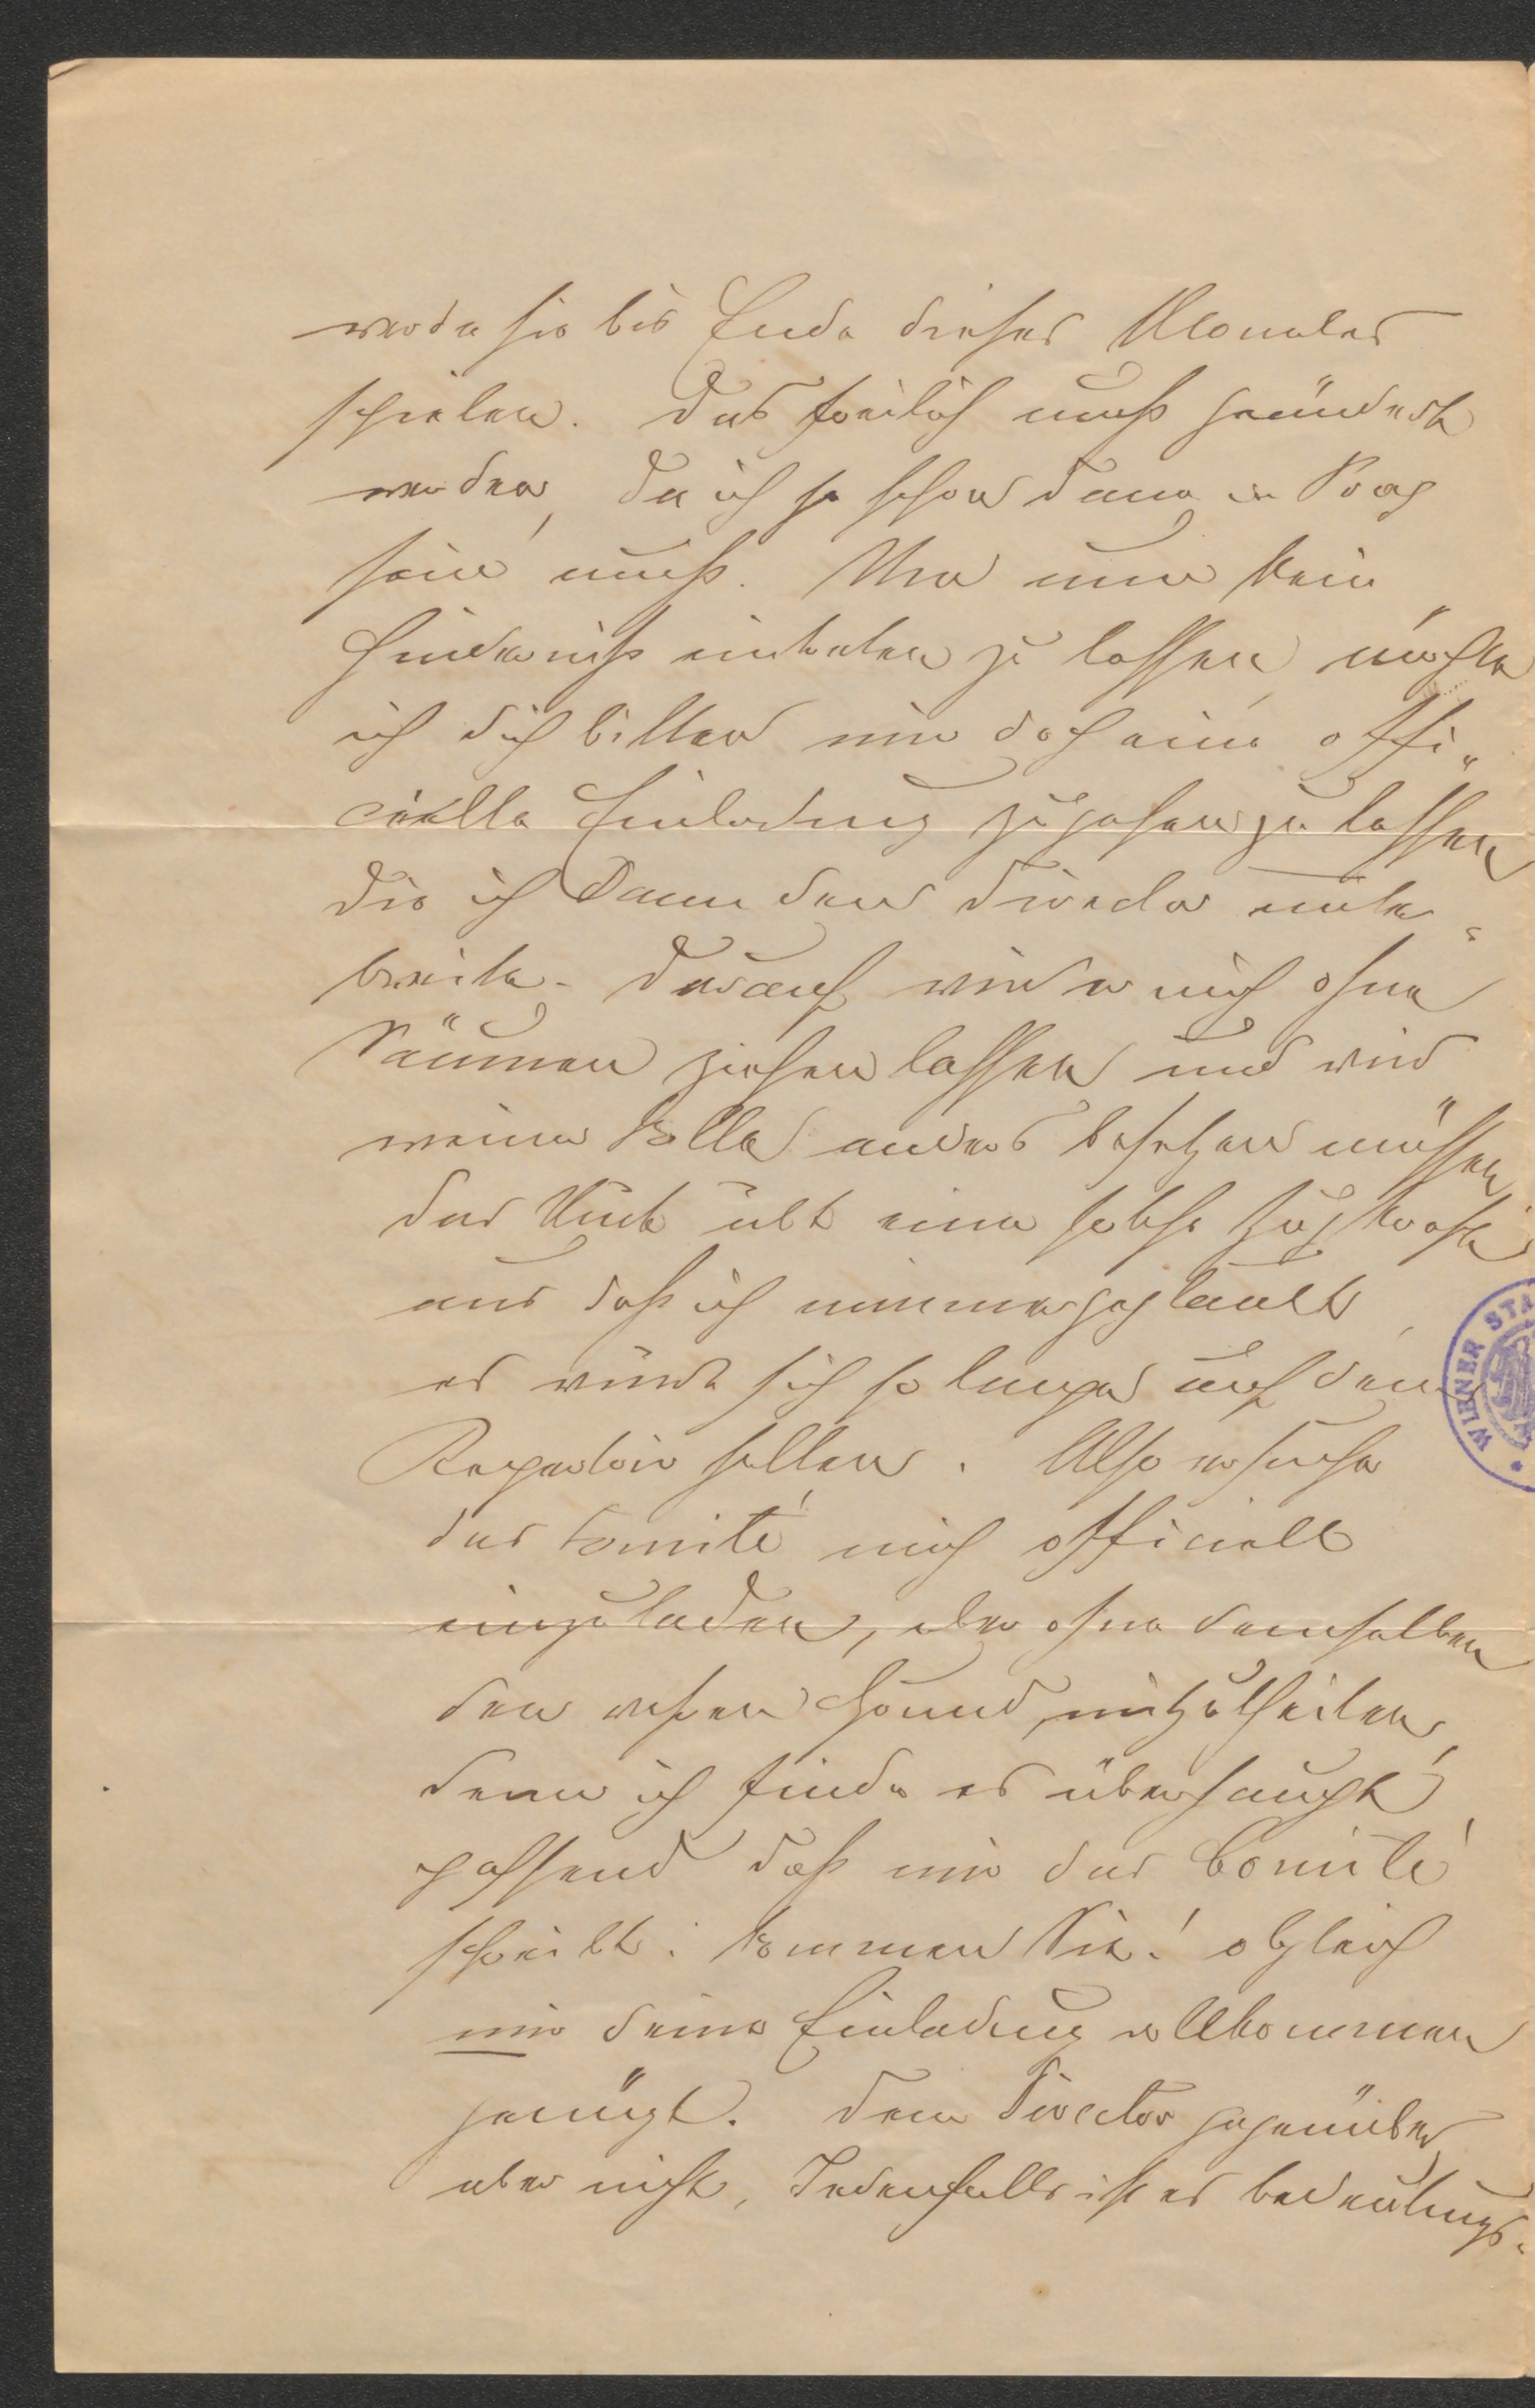 werde sie bis Ende dieses Monates
spielen. Das freilich muß geändert
werden, da ich ja schon dann in Prag
sein muß. Um nun kein
Hinderniß eintreten zu lassen möchte
ich dich bitten mir doch eine offi„
cielle Einladung zugehen zu lassen
die ich dann dem Director unter„
breite. Darauf wird er mich ohne
Säumen ziehen lassen und wird
meine Rolle anders besetzen müssen
das Stück übt eine solche Zugkraft
aus daß ich nimmer geglaubt,
es würde sich so lange auf dem
Repertoir halten. Also ersuche
das Comité mich officiell
einzuladen, aber ohne demselben
den wahren Grund mitzutheilen,
denn ich finde es überhaupt
passend daß mir das Comité
schreibt: kommen Sie! obgleich
mir deine Einladung vollkommen
genügt. Dem Director gegenüber
aber nicht, Jedenfalls ist es bedeutungs„
WIENER STA